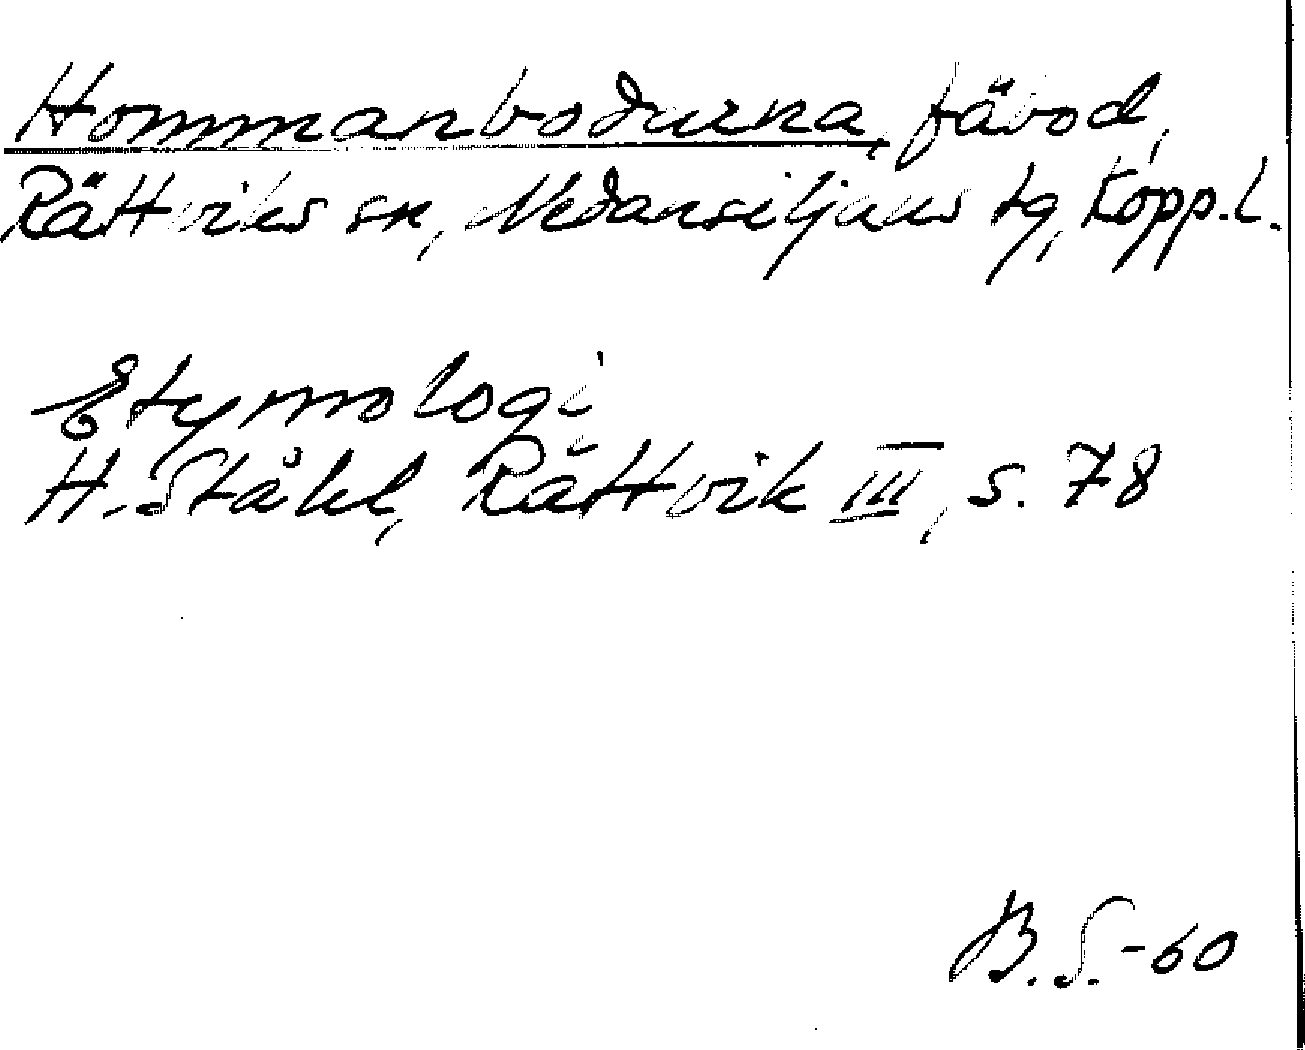 Hommanbodurna, fäbod,
Rättviks sn, Nedansiljans tg, Kopp.l.
Etymologi
H. Ståhl, Rättvik III, s. 78
B.S.-60